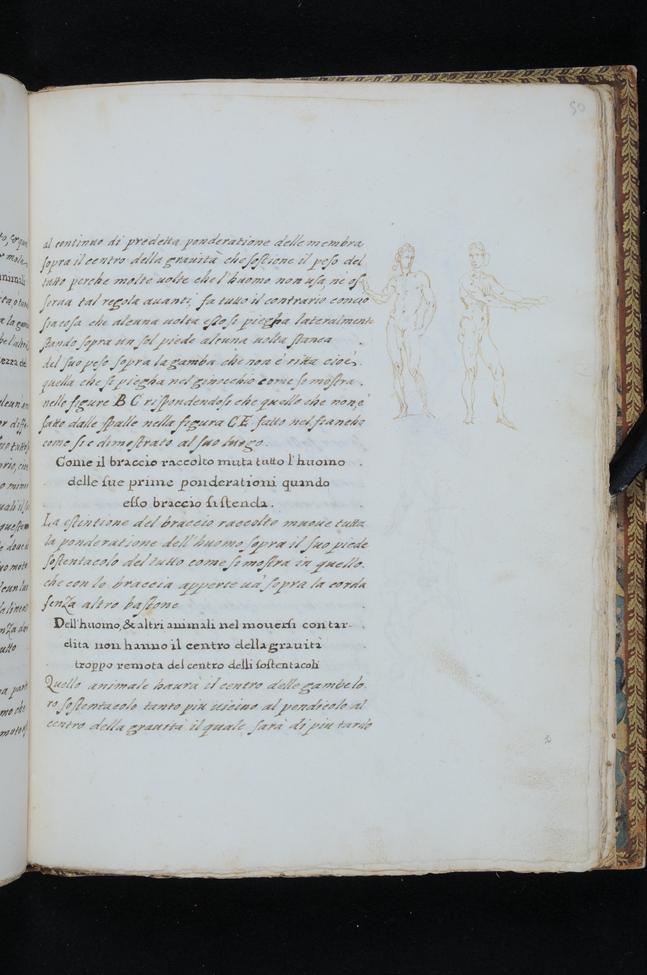 50
al continuo di predetta ponderatione delle membra
sopra il centro della gravità che sostiene il peso del
tutto perche molte volte che l'huomo non usa, ne os=
serva tal regola avanti, fa tutto il contrario concio
sia cosa che alcuna volta esso si piegha lateralmente
stando sopra un sol piede alcuna volta stanca
del suo peso sopra la gamba che non è ritta cioè,
quella che si piegha nel ginocchio come si mostra
nelle figure B C rispondendosi che quello che non è
fatto dalle spalle nella figura C E fatto nel fiancho
come si è dimostrato al suo luogo.
Come il braccio raccolto muta tutto l'huomo
delle sue prime ponderationi quando
esso braccio si stenda.
La estentione del braccio raccolto muove tutta
la ponderatione dell'huomo sopra il suo piede
sostentacolo del tutto come si mostra in quello
che con le braccia apperte và sopra la corda
senza altro bastone
Dell'huomo, & altri animali nel moversi con tar-
dita non hanno il centro della gravità
troppo remota del centro delli sostentacoli
Quello animale haurà il centro delle gambe lo,
ro sostentacolo tanto piu vicino al pendicolo al
centro della gravità il quale sarà di piu tardo